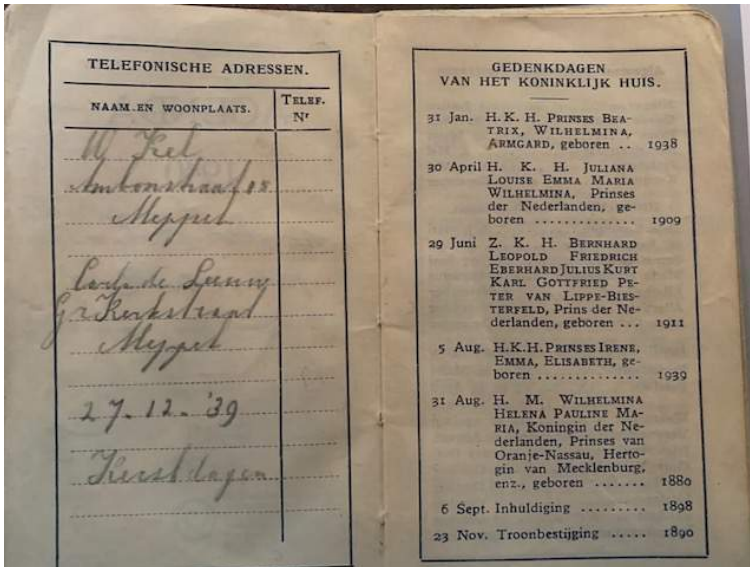 TELEFONISCHE ADRESSEN.
NAAM EN WOONPLAATS.
TELEF.
Nr
W Kel
Ambonstraat 18
Meppel
Carla de Leeuw
Gr Kerkstraat
Meppel
27-12-'39
Kerstdagen
GEDENKDAGEN
VAN HET KONINKLIJK HUIS.
31 Jan. H. K. H. PRINSES BEA-
TRIX, WILHELMINA,
ARMGARD, geboren .. 1938
30 April H. K. H. JULIANA
LOUISE EMMA MARIA
WILHELMINA, Prinses
der Nederlanden, ge-
boren .............. 1909
29 Juni Z. K. H. BERNHARD
LEOPOLD FRIEDRICH
EBERHARD JULIUS KURT
KARL GOTTFRIED PE-
TER VAN LIPPE-BIES-
TERFELD, Prins der Ne-
derlanden, geboren ... 1911
5 Aug. H.K.H. PRINSES IRENE,
EMMA, ELISABETH, ge-
boren .............. 1939
31 Aug. H. M. WILHELMINA
HELENA PAULINE MA-
RIA, Koningin der Ne-
derlanden, Prinses van
Oranje-Nassau, Herto-
gin van Mecklenburg,
enz., geboren ....... 1880
6 Sept. Inhuldiging ......... 1898
23 Nov. Troonbestijging ..... 1890